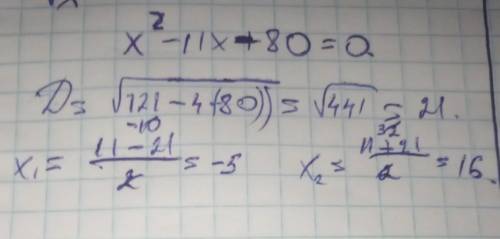 x² - 11x - 80 = 0
D = √(121 - 4(80)) = √441 = 21.
x₁ = (11 - 21)/2 = -5   x₂ = (11 + 21)/2 = 16.
-10   32